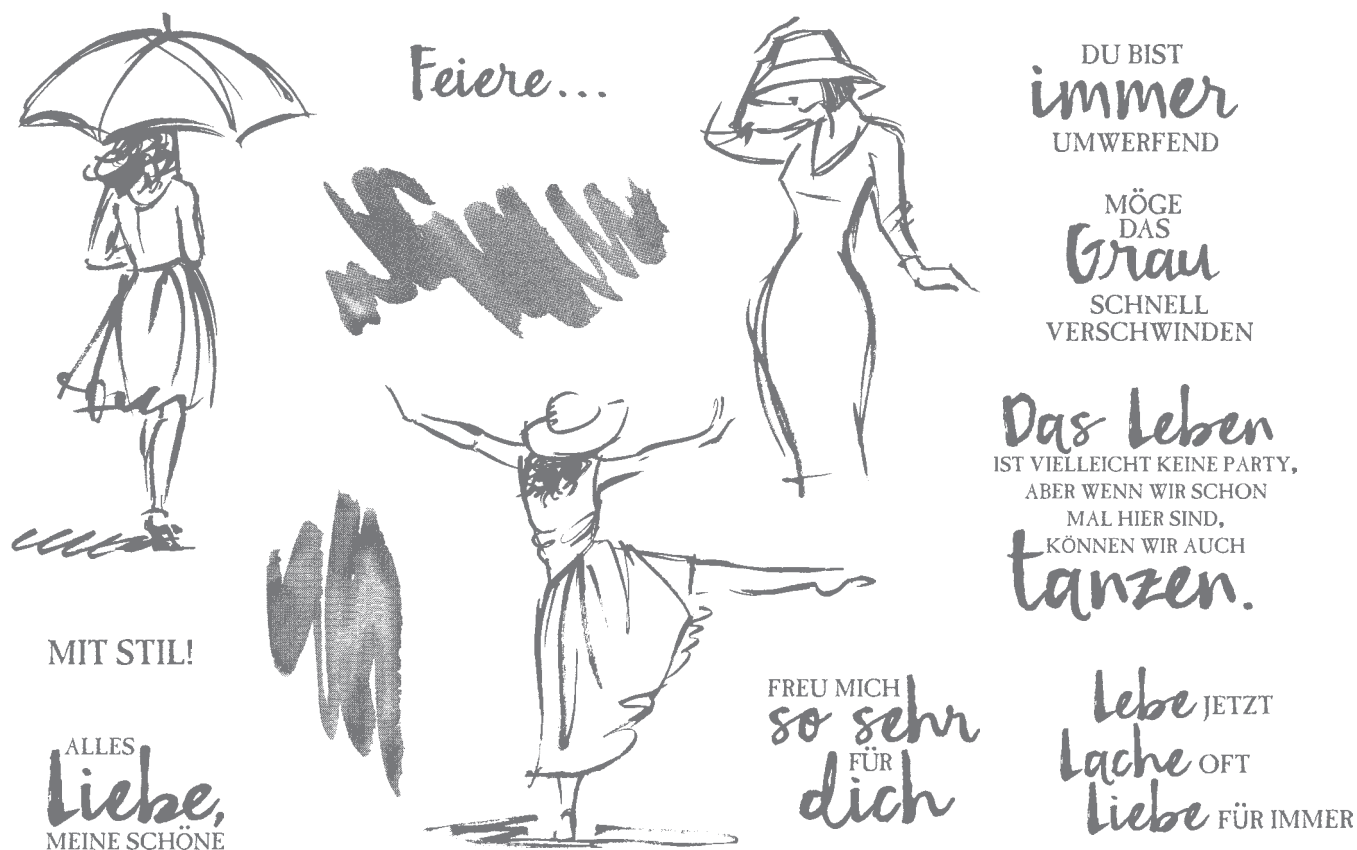 Feiere...
DU BIST
immer
UMWERFEND
MÖGE
DAS
Grau
SCHNELL
VERSCHWINDEN
Das Leben
IST VIELLEICHT KEINE PARTY,
ABER WENN WIR SCHON
MAL HIER SIND,
KÖNNEN WIR AUCH
tanzen.
MIT STIL!
ALLES
Liebe,
MEINE SCHÖNE
FREU MICH
so sehr
FÜR
dich
Lebe JETZT
Lache OFT
Liebe FÜR IMMER